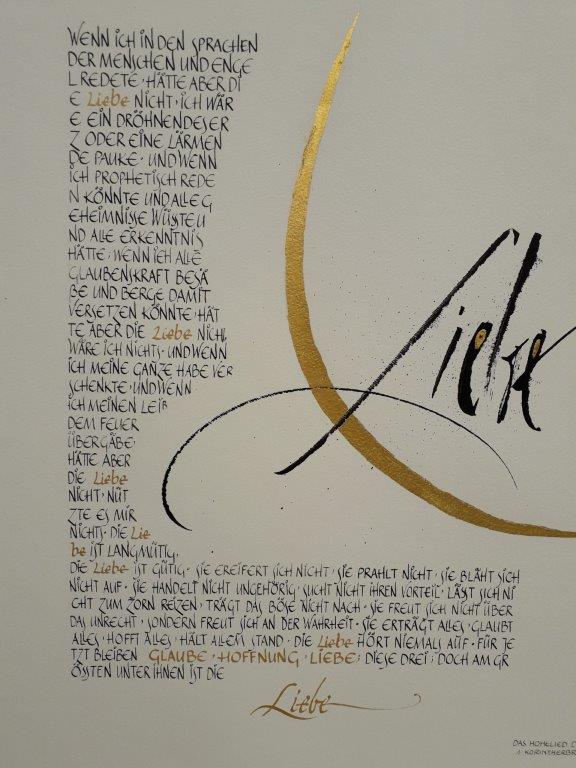 WENN ICH IN DEN SPRACHEN
DER MENSCHEN UND ENGE
L REDETE · HÄTTE ABER DI
E Liebe NICHT · ICH WÄR
E EIN DRÖHNENDES ER
Z ODER EINE LÄRMEN
DE PAUKE · UND WENN
ICH PROPHETISCH REDE
N KÖNNTE UND ALLE G
EHEIMNISSE WÜSSTE U
ND ALLE ERKENNTNIS
HÄTTE · WENN ICH ALLE
GLAUBENSKRAFT BESÄ
ßE UND BERGE DAMIT
VERSETZEN KÖNNTE · HÄT
TE ABER DIE Liebe NICHT,
WÄRE ICH NICHTS · UND WENN
ICH MEINE GANZE HABE VER
SCHENKTE · UND WENN
ICH MEINEN LEIB
DEM FEUER
ÜBERGÄBE ·
HÄTTE ABER
DIE Liebe
NICHT · NÜT
ZTE ES MIR
NICHTS · DIE Lie
be IST LANGMÜTIG.
DIE Liebe IST GÜTIG · SIE EREIFERT SICH NICHT · SIE PRAHLT NICHT · SIE BLÄHT SICH
NICHT AUF · SIE HANDELT NICHT UNGEHÖRIG · SUCHT NICHT IHREN VORTEIL · LÄSST SICH NI
CHT ZUM ZORN REIZEN · TRÄGT DAS BÖSE NICHT NACH · SIE FREUT SICH NICHT ÜBER
DAS UNRECHT · SONDERN FREUT SICH AN DER WAHRHEIT · SIE ERTRÄGT ALLES · GLAUBT
ALLES · HOFFT ALLES · HÄLT ALLEM STAND · DIE Liebe HÖRT NIEMALS AUF · FÜR JE
TZT BLEIBEN GLAUBE · HOFFNUNG · LIEBE; DIESE DREI; DOCH AM GR
ÖSSTEN UNTER IHNEN IST DIE
Liebe
Liebe
DAS HOHELIED D
1. KORINTHERBR